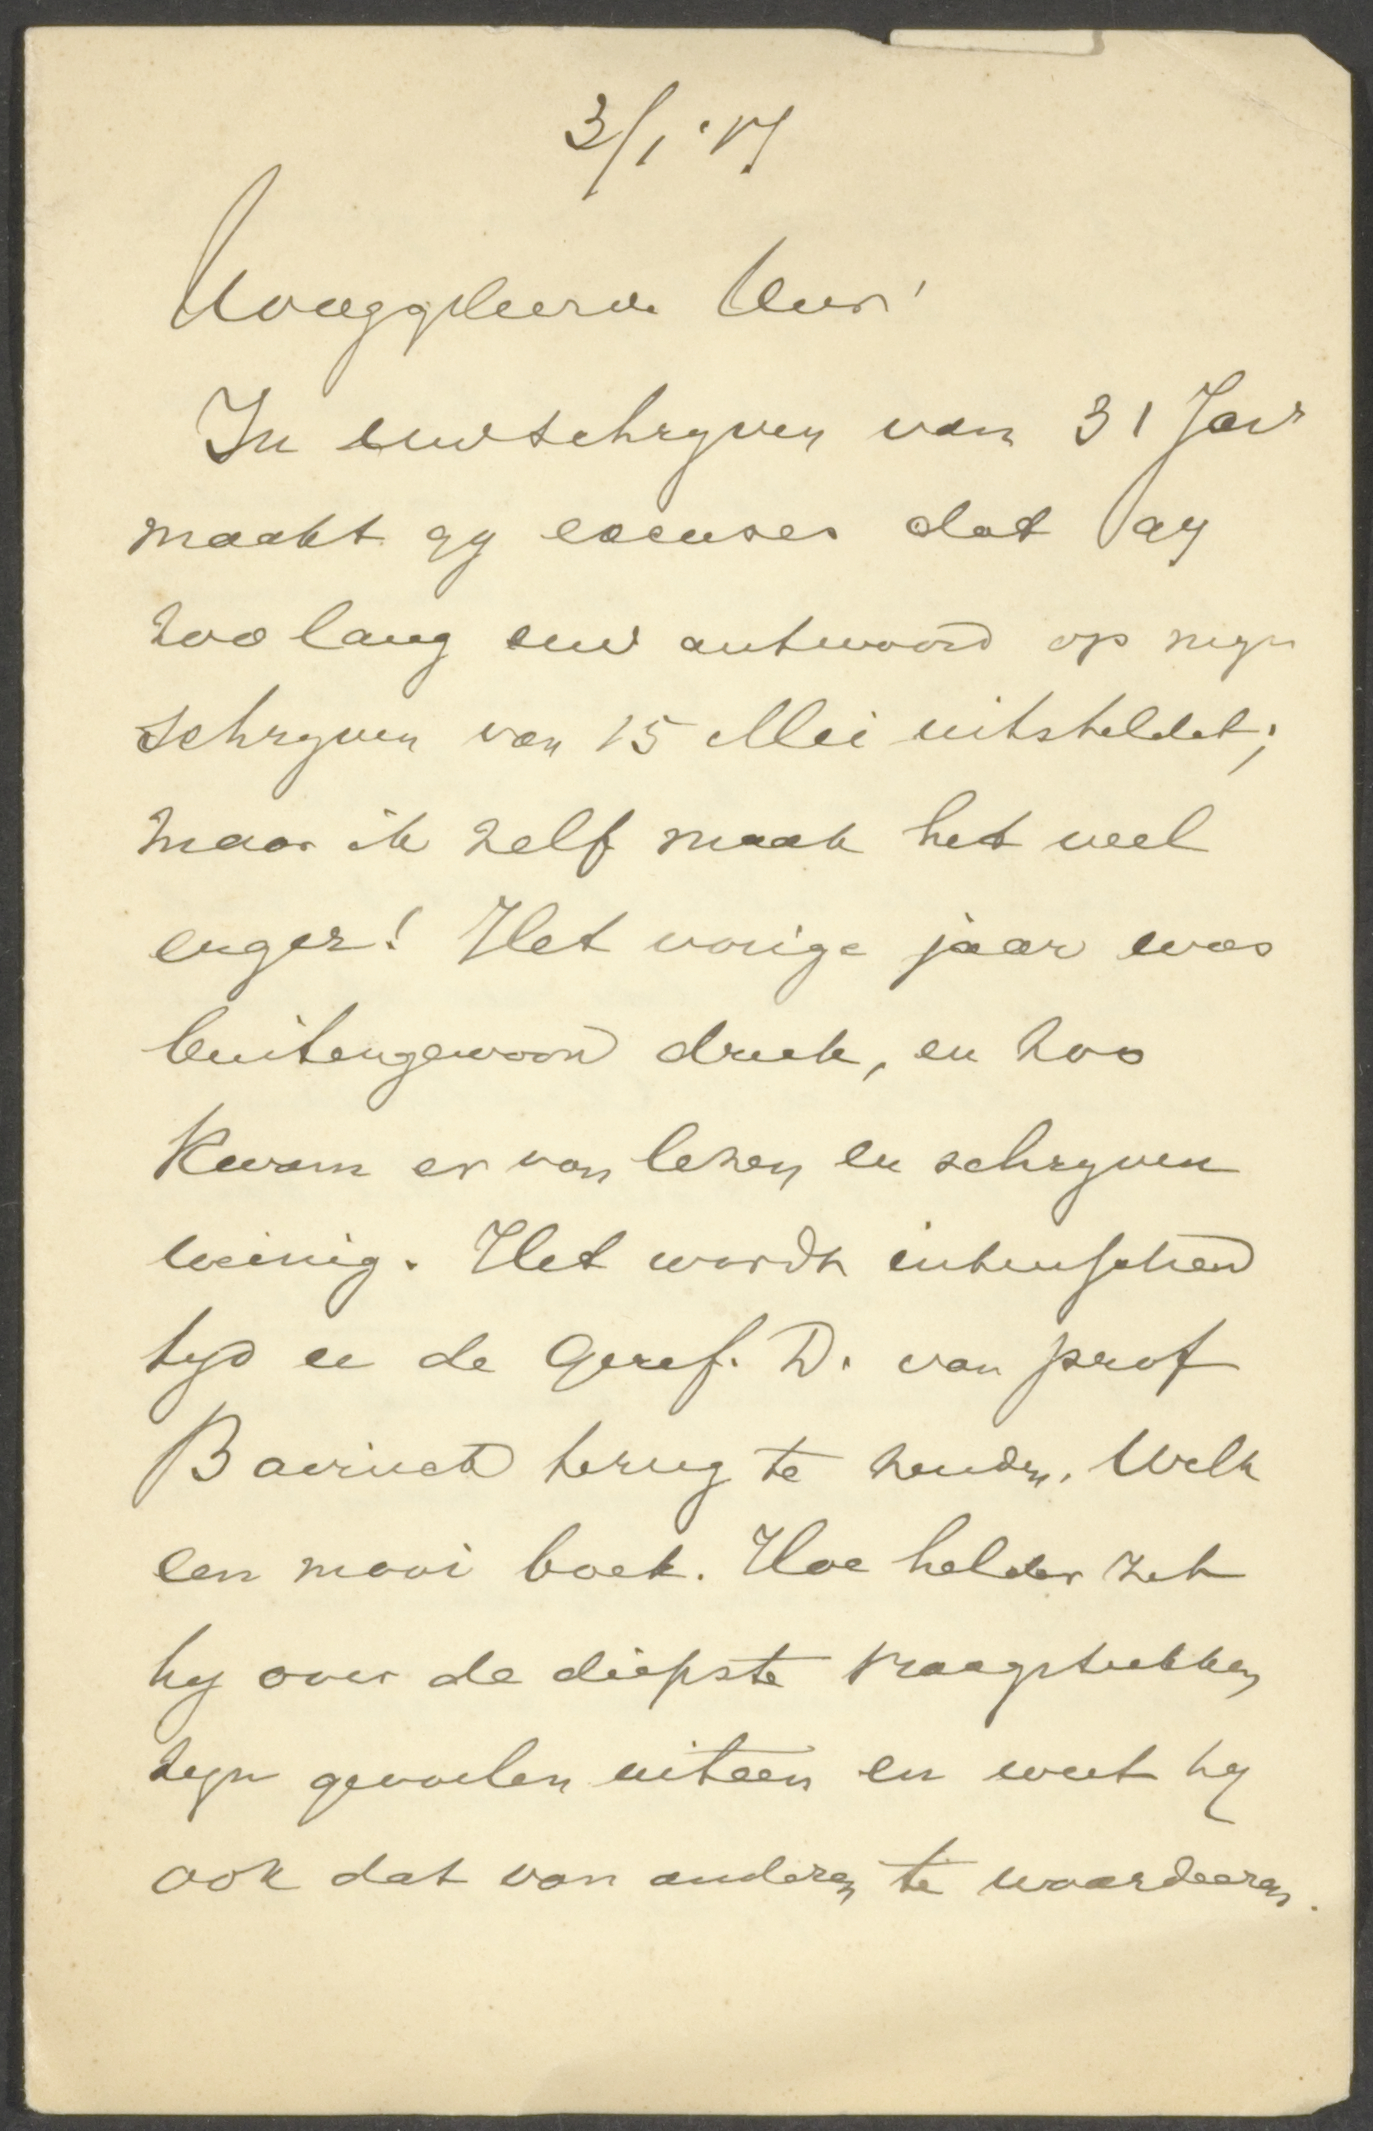 3/1 '17
Hooggeleerde Heer!
In uw schrijven van 31 Jan
maakt gij excuses dat gij
zoo lang uw antwoord op mijn
schrijven van 15 Mei uitsteldet;
maar ik zelf maak het veel
erger! Het vorige jaar was
buitengewoon druk, en zoo
kwam er van lezen en schrijven
weinig. Het wordt intusschen
tijd u de Geref. D. van prof
Bavinck terug te zenden. Welk
een mooi boek. Hoe helder zet
hij over de diepste vraagstukken
zijn gevoelen uiteen en weet hij
ook dat van anderen te waardeeren.